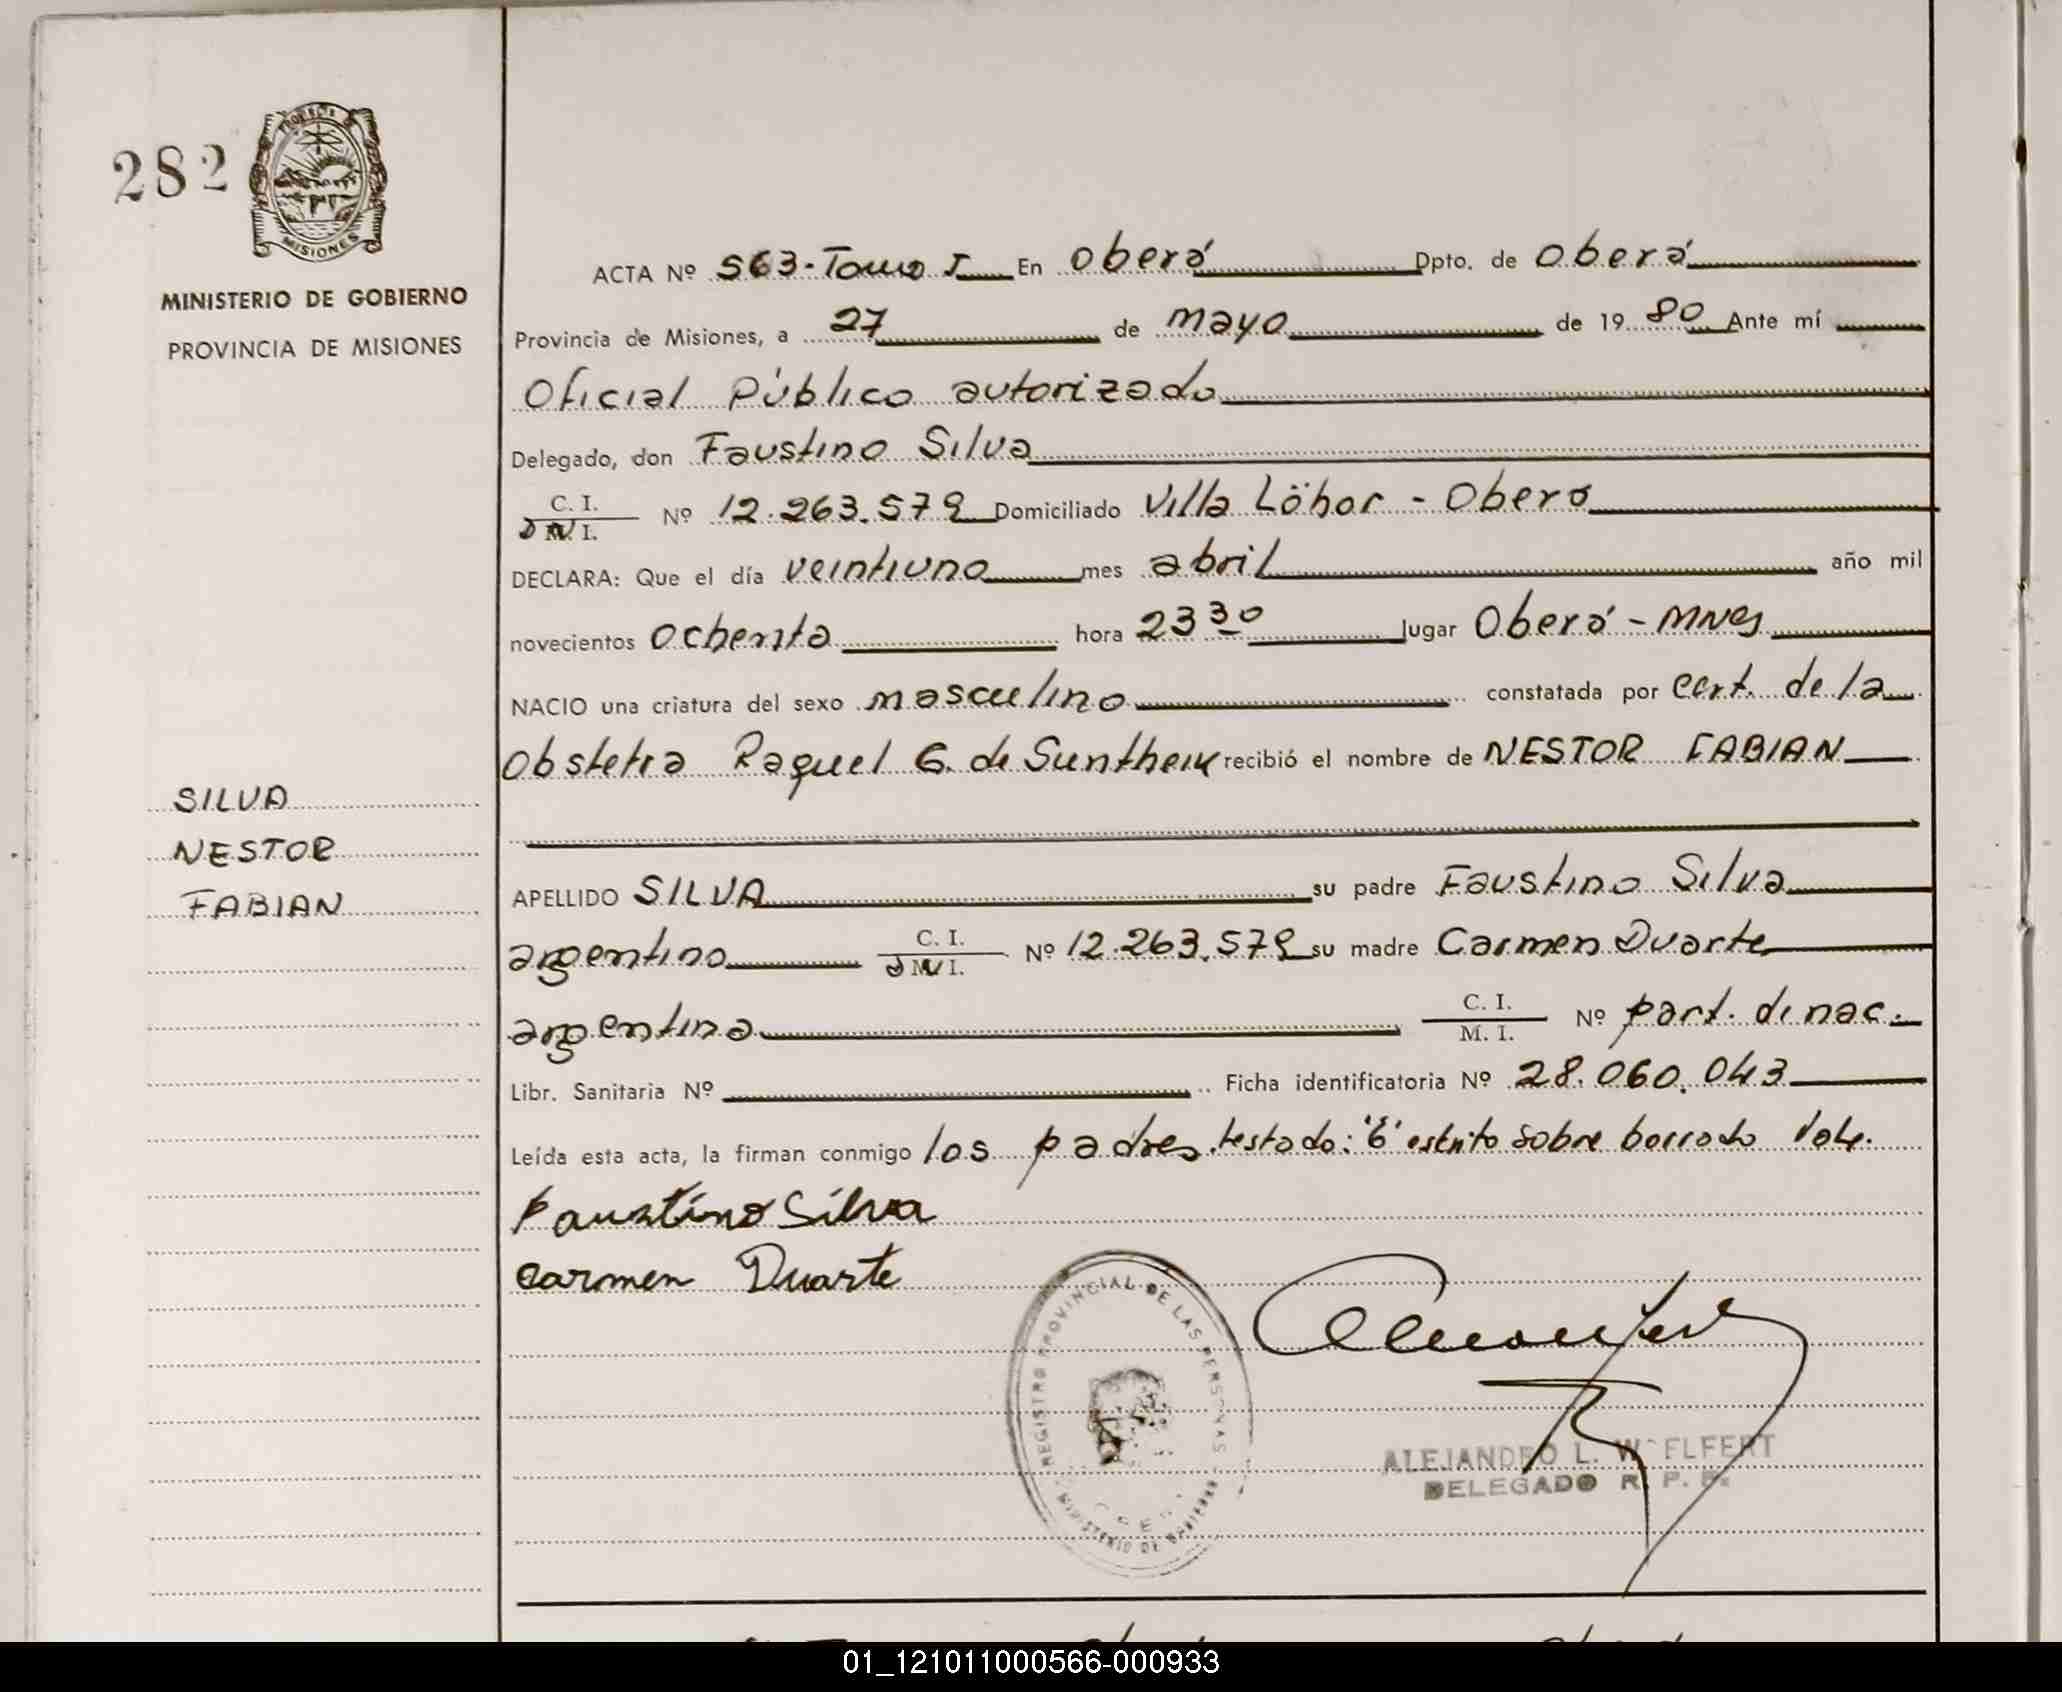 282
PROVINCIA DE
MISIONES
MINISTERIO DE GOBIERNO
PROVINCIA DE MISIONES
ACTA Nº 563-Tomo I En Oberá Dpto. de Oberá
Provincia de Misiones, a 27 de mayo de 1980 Ante mí
Oficial Público autorizado
Delegado, don Faustino Silva
C. I.
D N I. Nº 12.263.579 Domiciliado Villa Löhor - Oberá
DECLARA: Que el día veintiuno mes abril año mil
novecientos ochenta hora 23 30 lugar Oberá - Mnes
NACIO una criatura del sexo masculino constatada por cert. de la
Obstetra Raquel G. de recibió el nombre de NESTOR FABIAN
SILVA
NESTOR
FABIAN
APELLIDO SILVA su padre Faustino Silva
argentino C. I. D N I. Nº 12.263.579 su madre Carmen Duarte
argentina C. I. M. I. Nº part. de nac.
Libr. Sanitaria Nº Ficha identificatoria Nº 28.060.043
Leída esta acta, la firman conmigo los padres. testado: "6" escrito sobre borrado Vale.
Faustino Silva
Carmen Duarte
REGISTRO PROVINCIAL DE LAS PERSONAS
MINISTERIO DE GOBIERNO
ALEJANDRO L. WOELFERT
DELEGADO R. P. P.
01_121011000566-000933